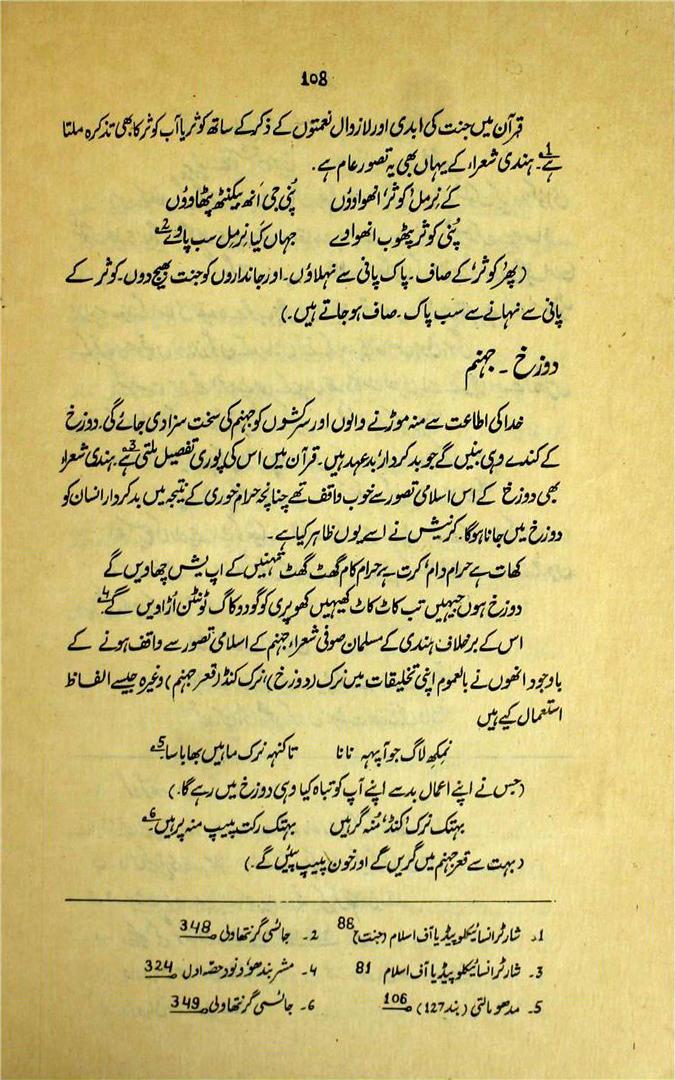 108
قرآن میں جنت کی ابدی اور لازوال نعمتوں کے ذکر کے ساتھ کوثر یا آب کوثر کا بھی تذکرہ ملتا
ہے۔1 ہندی شعراء کے یہاں بھی یہ تصور عام ہے۔
کے نِرمل 'کوثر' انھواووُں پُنّی جی اَنھ بیکنٹھ پٹھاووُں
پُنّی کوثر پیٹھوب انھواوے جہاں کَیا نِرمِل سب پاوے2
(پھر 'کوثر' کے صاف۔ پاک پانی سے نہلاؤں۔ اور جانداروں کو جنت بھیج دوں۔ کوثر کے
پانی سے نہانے سے سَب پاک۔ صاف ہو جاتے ہیں۔)
دوزخ ۔ جہنم
خدا کی اطاعت سے منہ موڑنے والوں اور سرکشوں کو جہنم کی سخت سزا دی جائے گی۔ دوزخ
کے کندے وہی بنیں گے جو بد کردار' بد عہد ہیں۔ قرآن میں اس کی پوری تفصیل ملتی ہے3۔ ہندی شعراء
بھی دوزخ کے اس اسلامی تصور سے خوب واقف تھے چنانچہ حرام خوری کے نتیجہ میں بد کردار انسان کو
دوزخ میں جانا ہوگا۔ کرنیش نے اسے یوں ظاہر کیا ہے۔
کھات ہے حرام دام' کرت ہے حرام کام گھٹ گھٹ تمہنیں کے اپ یش چھاویں گے
دوزخ ہوں جیہیں تب کاٹ کاٹ کھیہیں کھوپری کو گودو کاگ ٹونٹن اُڑاویں گے4
اس کے برخلاف ہندی کے مسلمان صوفی شعراء جہنم کے اسلامی تصور سے واقف ہونے کے
باوجود انھوں نے بالعموم اپنی تخلیقات میں نرک (دوزخ)، نرک کنڈ (قعر جہنم) وغیرہ جیسے الفاظ
استعمال کیے ہیں
نمکھ لاگ جو آپہہ نانا تا کنہہ نرک ماہیں بھا باسا5
(جس نے اپنے اعمال بد سے اپنے آپ کو تباہ کیا وہی دوزخ میں رہے گا۔)
بہتک نرک 'کنڈ' مُنہ گرہیں بہتک رکت پیپ منہ پرہیں6
(بہت سے قعر جہنم میں گریں گے اور خون پیپ پئیں گے۔)
1۔ شارٹر انسائیکلوپیڈیا آف اسلام (جنت) 88 2۔ جائسی گرنتھاولی 348
3۔ شارٹر انسائیکلوپیڈیا آف اسلام 81 4۔ مشر بندھو' ونود حصّہ اول 324
5۔ مدھو مالتی (بند 127) 106 6۔ جائسی گرنتھاولی 349